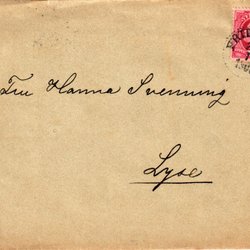 Fru Hanna Svenning
Lyse